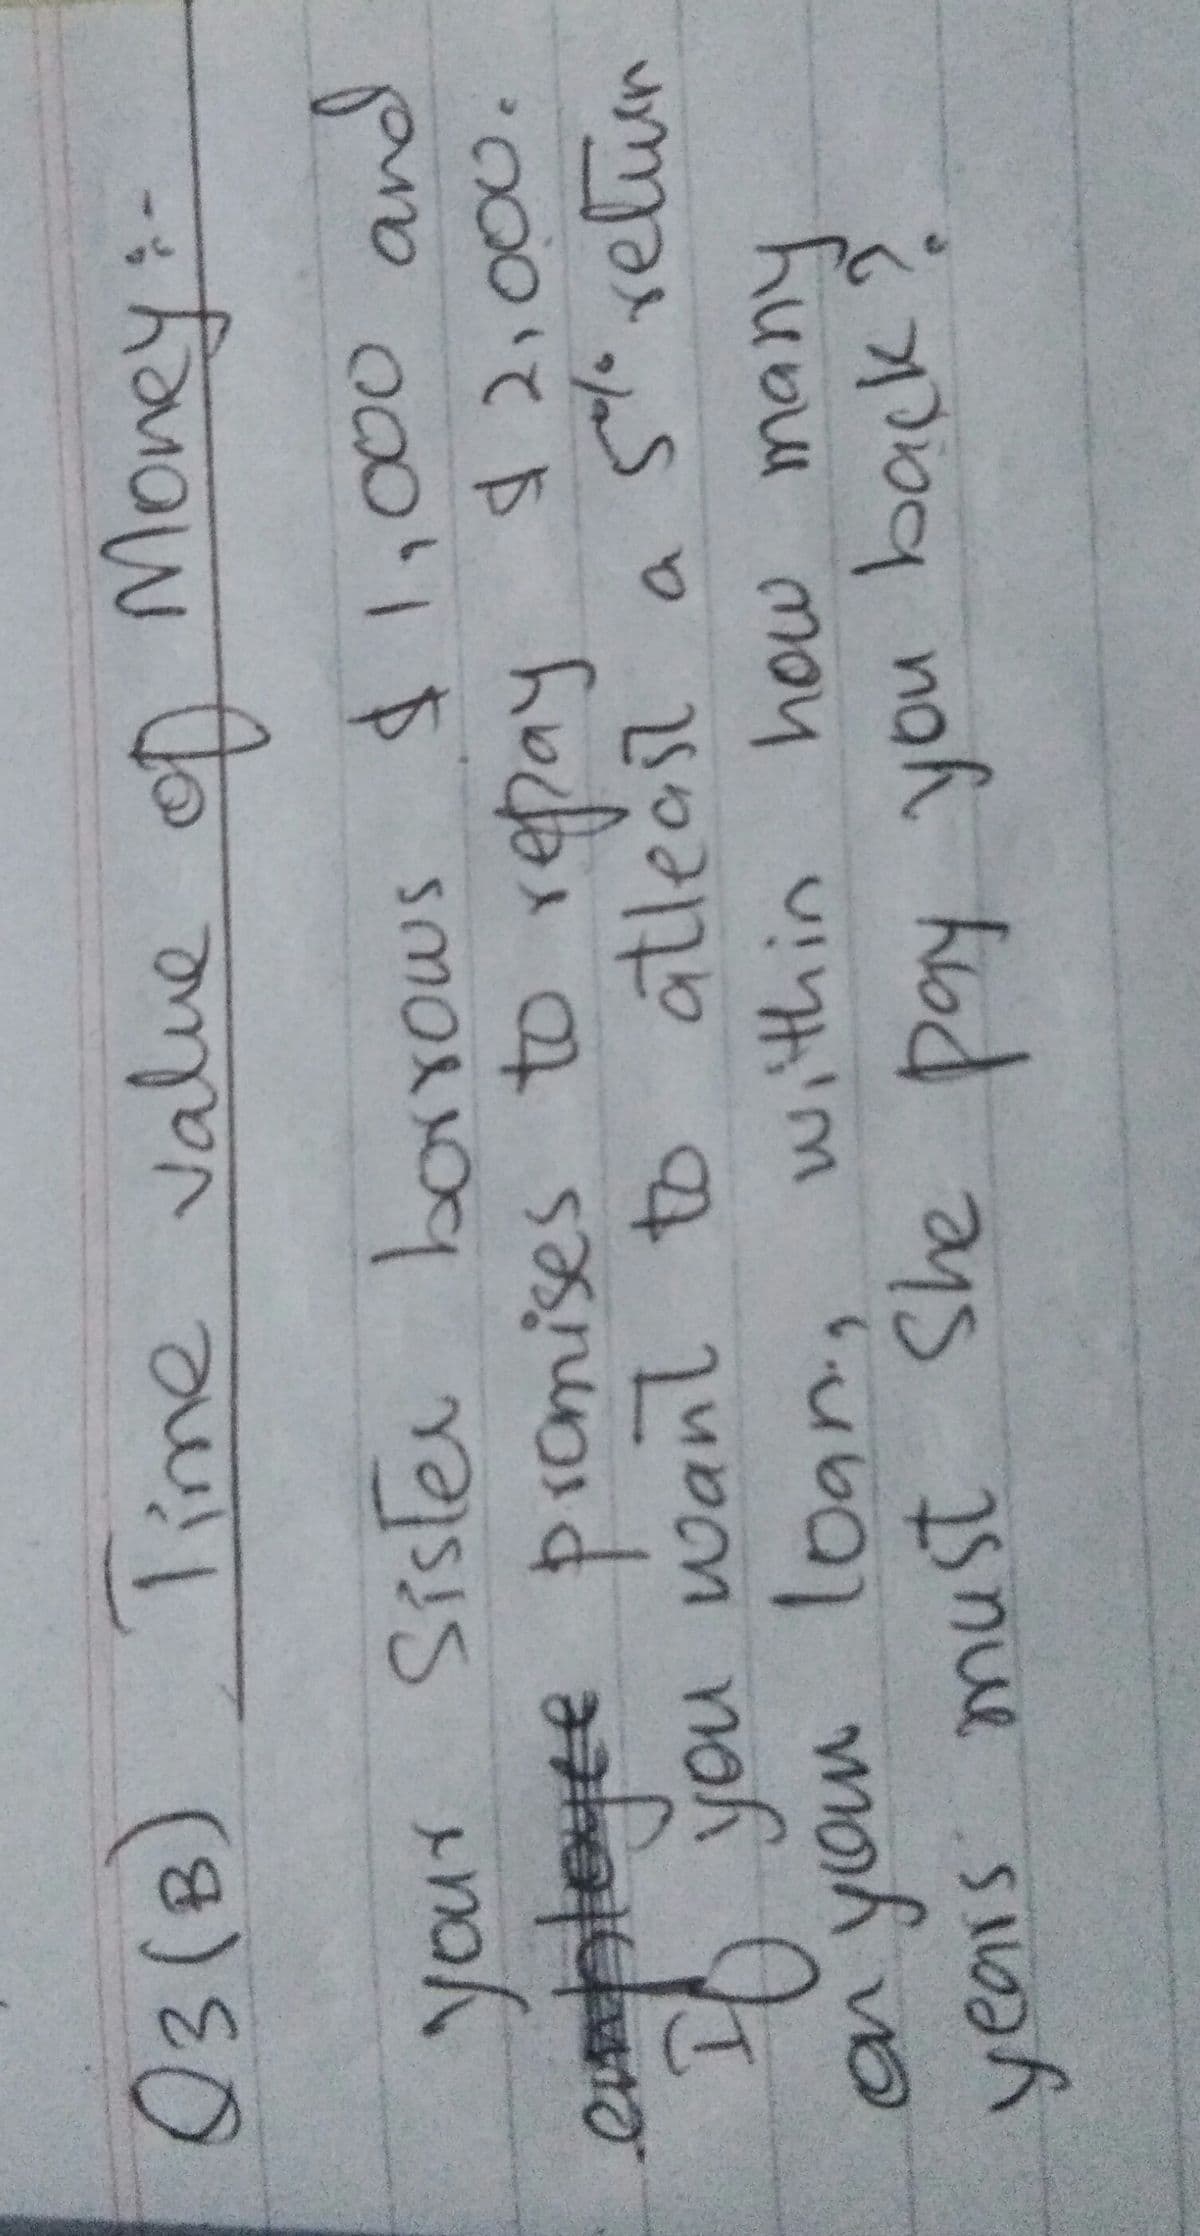 Q3(B) Time value of Money:-
your Sister borrows $ 1,000 and
employee promises to repay $ 2,000.
If you want to atleast a 5% return
on your loan, within how many
years must She pay you back?